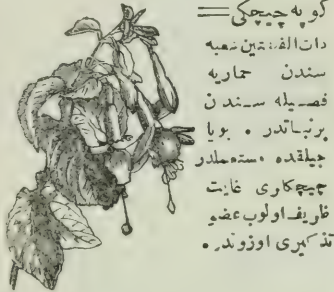 كوپه چیچكی =
ذات الفلقتین شعبه
سندن حماریه
فصیله سندن
برنباتدر • بویا
جیلقده مستعملدر
چیچكلری غایت
ظریف اولوب عضو
تذكیری اوزوندر •